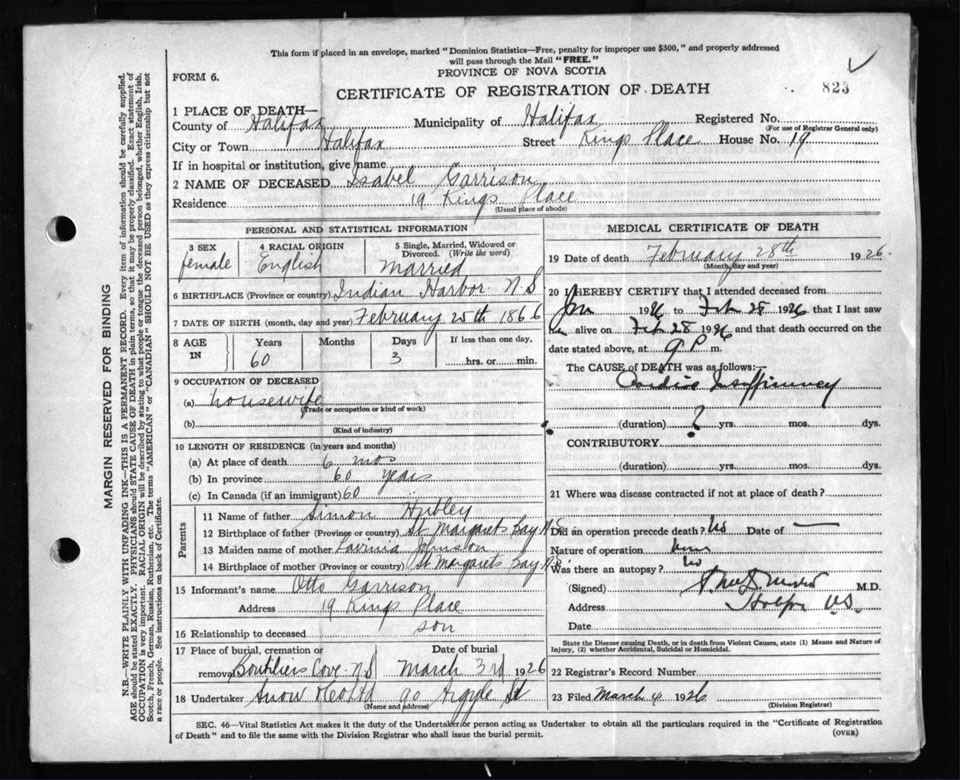 This form if placed in an envelope, marked "Dominion Statistics—Free, penalty for improper use $300," and properly addressed
will pass through the Mail "FREE."
PROVINCE OF NOVA SCOTIA
FORM 6.
CERTIFICATE OF REGISTRATION OF DEATH
823
1 PLACE OF DEATH—
County of Halifax Municipality of Halifax Registered No.
(For use of Registrar General only)
City or Town Halifax Street Kings Place House No. 19
If in hospital or institution, give name
2 NAME OF DECEASED Isabel Garrison
Residence 19 Kings Place
(Usual place of abode)
PERSONAL AND STATISTICAL INFORMATION
3 SEX 4 RACIAL ORIGIN 5 Single, Married, Widowed or
Divorced. (Write the word)
female English Married
6 BIRTHPLACE (Province or country) Indian Harbor N.S
7 DATE OF BIRTH (month, day and year) February 25th 1866
8 AGE IN Years Months Days If less than one day,
60 3 hrs. or min.
9 OCCUPATION OF DECEASED
(a) housewife
(Trade or occupation or kind of work)
(b)
(Kind of industry)
10 LENGTH OF RESIDENCE (in years and months)
(a) At place of death 6 mos
(b) In province 60 years
(c) In Canada (if an immigrant) 60
Parents
11 Name of father Simon Hubley
12 Birthplace of father (Province or country) St Margarets Bay N.S
13 Maiden name of mother Lavinia Johnston
14 Birthplace of mother (Province or country) St Margarets Bay N.S
15 Informant's name Otto Garrison
Address 19 Kings Place
16 Relationship to deceased son
17 Place of burial, cremation or Date of burial
removal Boutiliers Cove N.S March 3rd 1926
18 Undertaker Snow & Co Ltd 90 Argyle St
(Name and address)
MEDICAL CERTIFICATE OF DEATH
19 Date of death February 28th 1926
(Month, day and year)
20 I HEREBY CERTIFY that I attended deceased from
Jan 1926 to Feb 28 1926 that I last saw
alive on Feb 28 1926 and that death occurred on
date stated above, at 9 P m.
The CAUSE of DEATH was as follows:
Cardiac Insufficiency
(duration) ? yrs. mos. dys.
CONTRIBUTORY
(duration) yrs. mos. dys.
21 Where was disease contracted if not at place of death?
Did an operation precede death? No Date of —
Nature of operation
Was there an autopsy? No
(Signed) M.D.
Address Halifax N.S.
Date
State the Disease causing Death, or in death from Violent Causes, state (1) Means and Nature of
Injury, (2) whether Accidental, Suicidal or Homicidal.
22 Registrar's Record Number
23 Filed March 4 1926
(Division Registrar)
SEC. 46—Vital Statistics Act makes it the duty of the Undertaker or person acting as Undertaker to obtain all the particulars required in the "Certificate of Registration
of Death" and to file the same with the Division Registrar who shall issue the burial permit.
(OVER)
MARGIN RESERVED FOR BINDING
N.B.—WRITE PLAINLY, WITH UNFADING INK—THIS IS A PERMANENT RECORD. Every item of information should be carefully supplied.
AGE should be stated EXACTLY. PHYSICIANS should STATE CAUSE OF DEATH in plain terms, so that it may be properly classified. Exact statement of
OCCUPATION is very important. RACIAL ORIGIN will be described by stating to what people or tongue the deceased person belonged, whether English, Irish,
Scotch, French, German, Russian, Ruthenian, etc. The terms "AMERICAN" or "CANADIAN" SHOULD NOT BE USED as they express citizenship but not
a race or people. See instructions on back of Certificate.